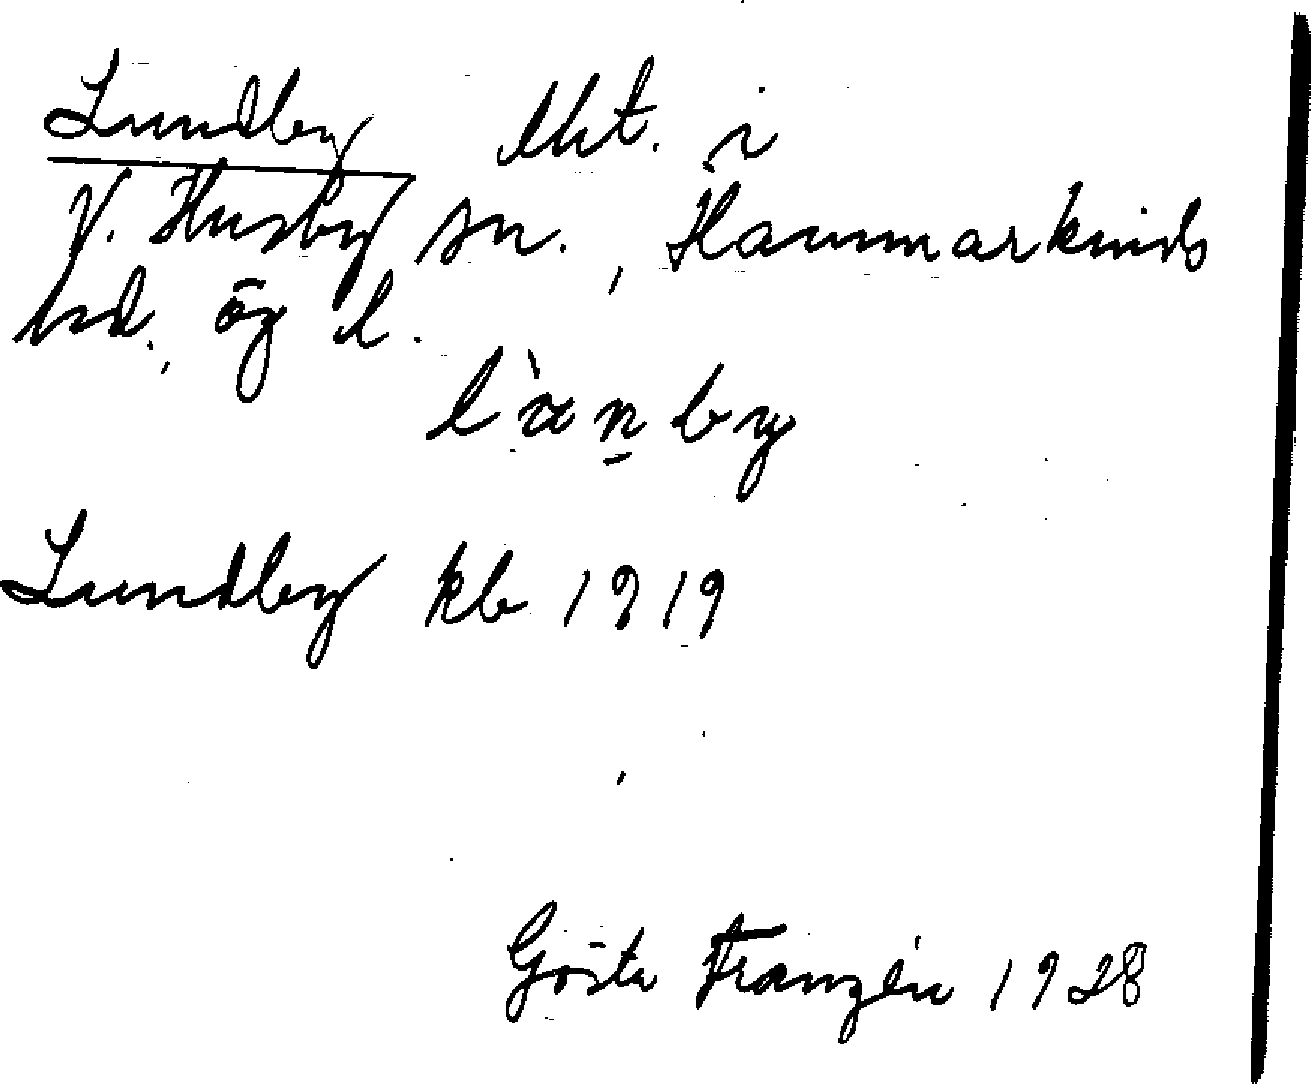 Lundby tkt. i
V. Husby sn., Hammarkinds
hd., Ög l.
l`ɑn̲by
Lundby kb 1919
Gösta Franzén 1928